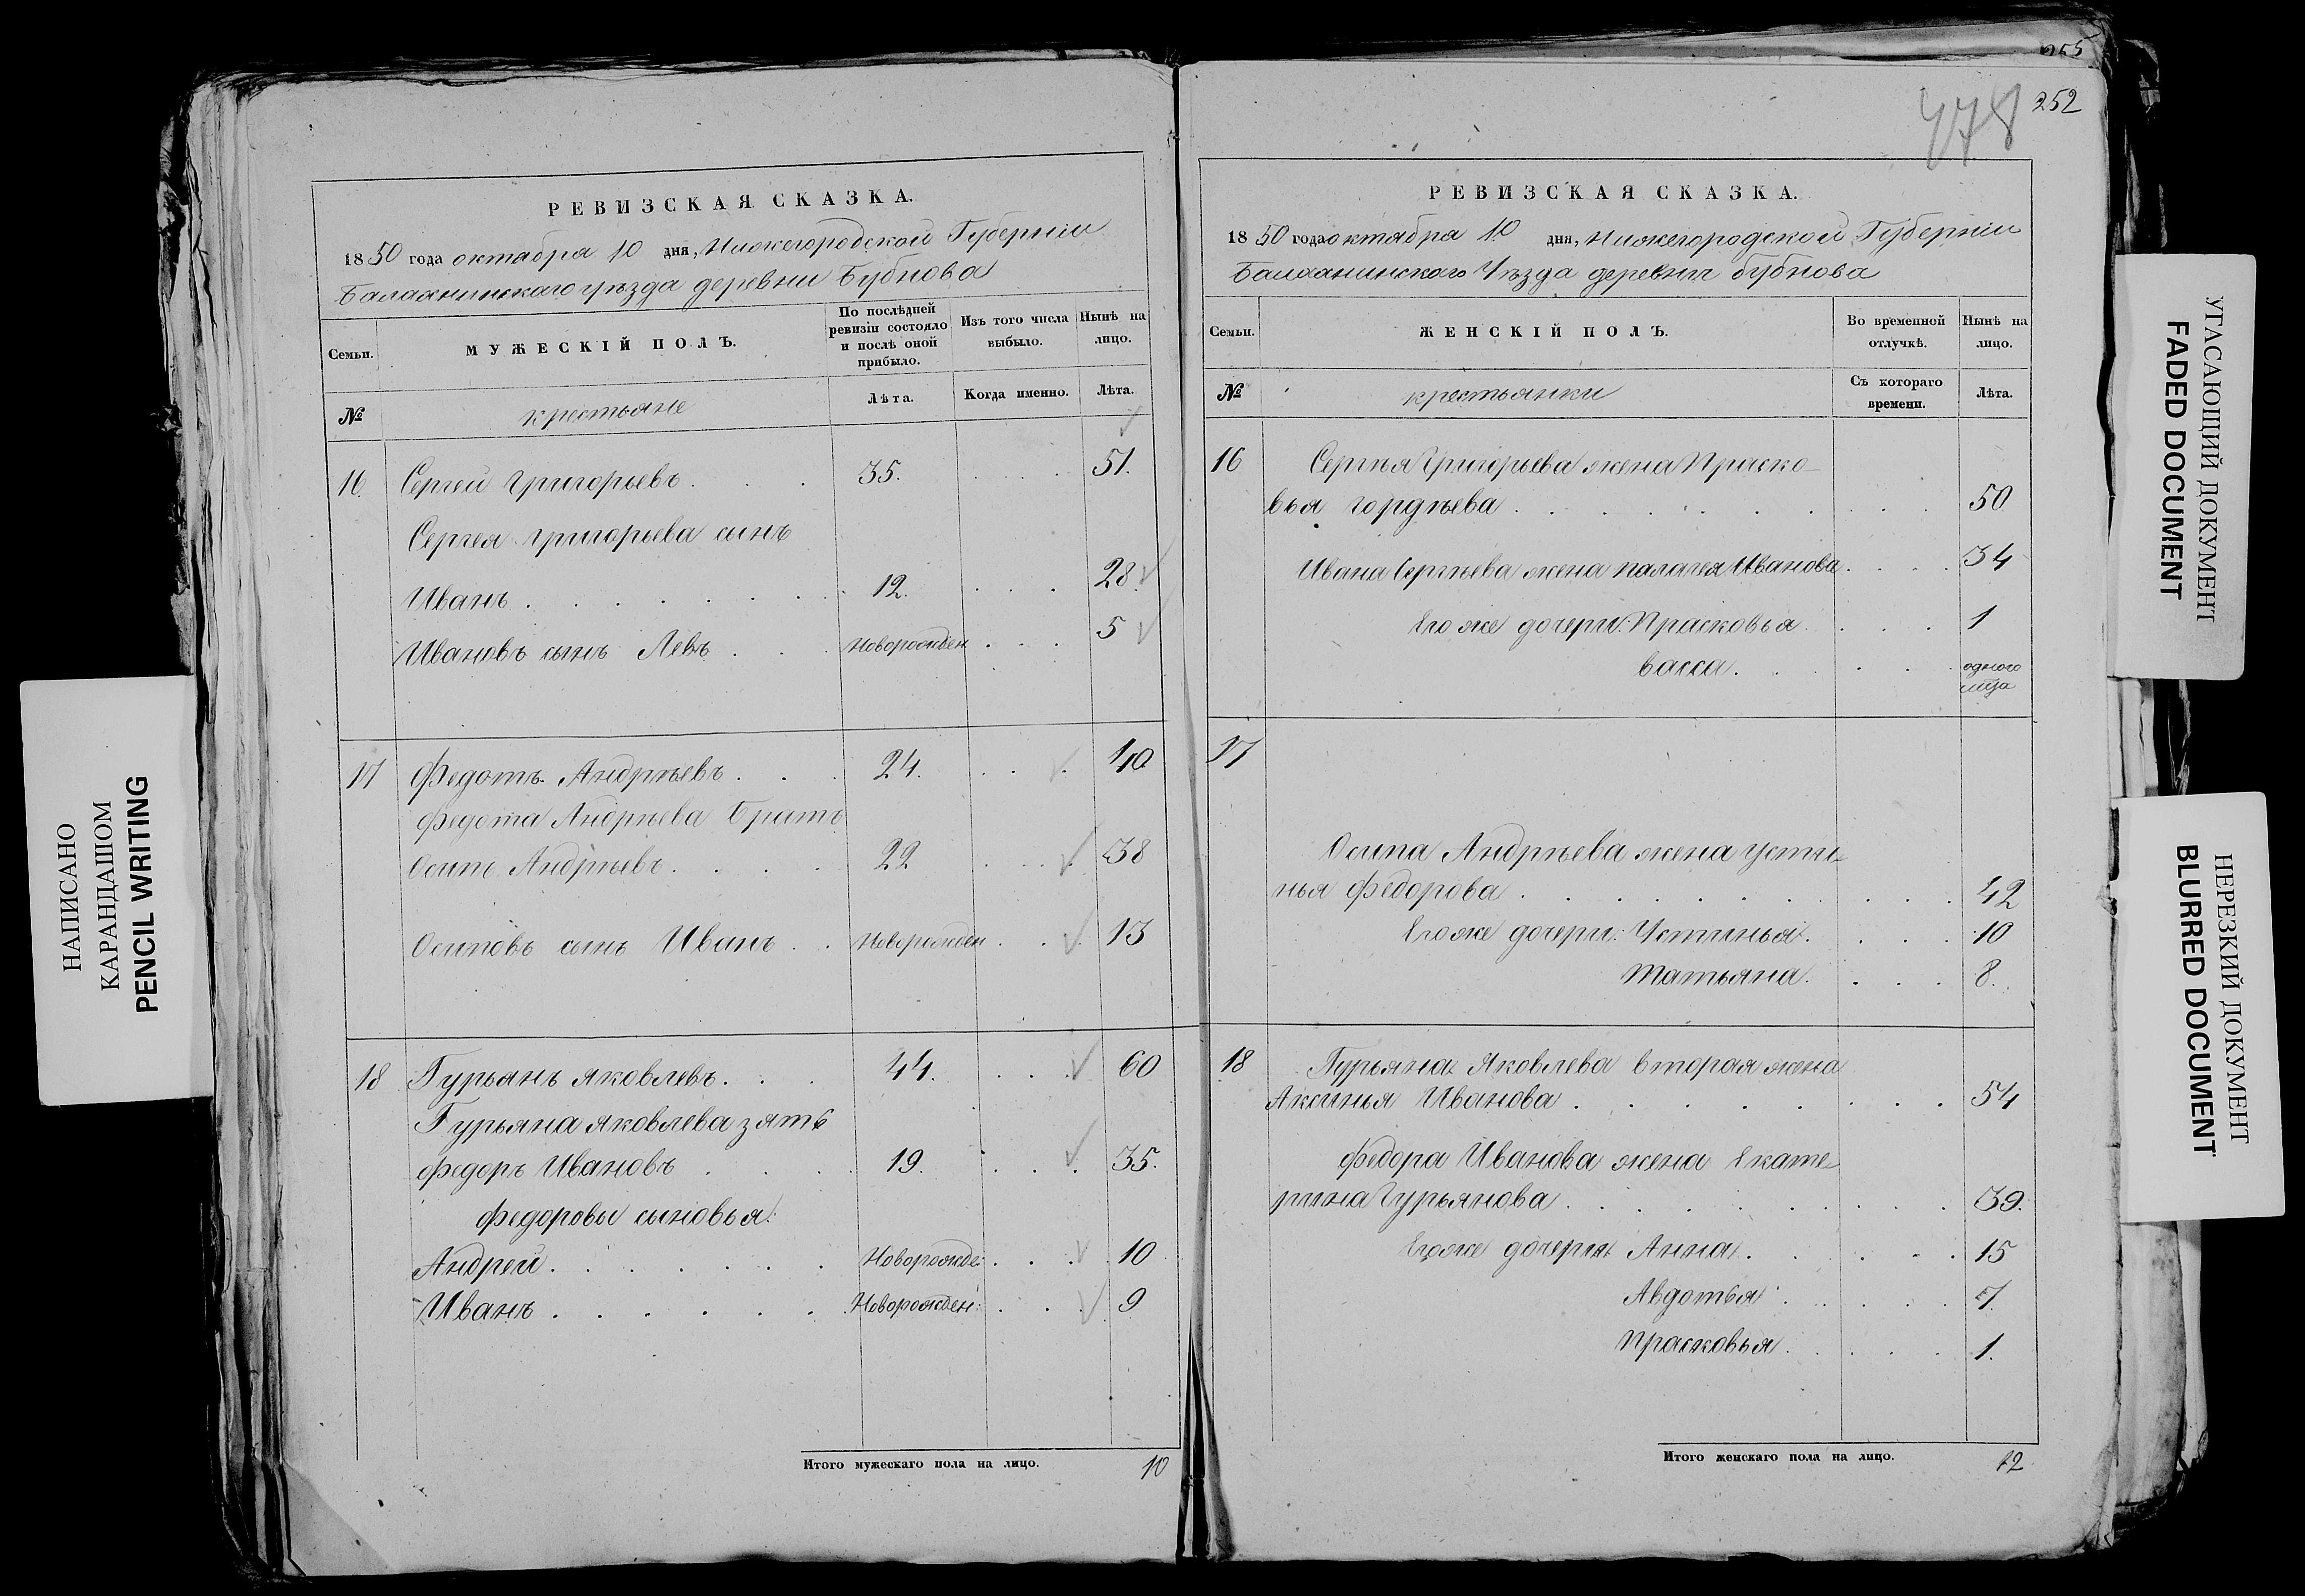 255
478 252
РЕВИЗСКАЯ СКАЗКА.
1850 года октября 10 дня, Нижегородской Губерніи
Балахнинскаго уѣзда деревни Бубнова
Семьи.
МУЖЕСКІЙ ПОЛЪ.
По послѣдней ревизіи состояло и послѣ оной прибыло.
Изъ того числа выбыло.
Нынѣ на лицо.
№
крестьяне
Лѣта.
Когда именно.
Лѣта.
16. Сергей Григорьевъ . . . 35. . . . 51.
Сергея Григорьева сынъ
Иванъ . . . . . . . 12. . . . 28.
Ивановъ сынъ Левъ . . . Новорожден . . . 5
17 Федотъ Андрѣевъ . . . 24. . . . 40
Федота Андрѣева Братъ
Осипъ Андрѣевъ . . . . 22 . . . 38
Осиповъ сынъ Иванъ . . Новорожден . . . 13
18 Гурьянъ Яковлевъ . . . 44. . . . 60
Гурьяна Яковлева зять
Федоръ Ивановъ . . . . 19. . . . 35.
Федоровы сыновья:
Андрей . . . . . . . Новорожде: . . . 10
Иванъ . . . . . . . Новорожден: . . . 9
Итого мужескаго пола на лицо. 10
РЕВИЗСКАЯ СКАЗКА.
1850 года октября 10 дня, Нижегородской Губерніи
Балахнинскаго Уѣзда деревни бубнова
Семьи.
ЖЕНСКІЙ ПОЛЪ.
Во временной отлучкѣ.
Нынѣ на лицо.
№
крестьянки
Съ котораго времени.
Лѣта.
16 Сергѣя Григорьева жена Праско-
вья гордѣева . . . . . . . . 50
Ивана Сергѣева жена палагея Иванова . . . . 34
Его же дочери: Прасковья . . . . 1
васса . . . . одного
17
Осипа Андрѣева жена усти-
нья Федорова . . . . . . . . 42
Его же дочери: Устинья . . . . 10
Татьяна . . . . 8.
18 Гурьяна Яковлева вторая жена
Аксинья Иванова . . . . . . . . 54
Федора Иванова жена Екате-
рина Гурьянова . . . . . . . . 39.
Его же дочери: Анна . . . . . 15
Авдотья . . . . . 7.
Прасковья . . . . . 1.
Итого женскаго пола на лицо. 12
НАПИСАНО
КАРАНДАШОМ
PENCIL WRITING
УГАСАЮЩИЙ ДОКУМЕНТ
FADED DOCUMENT
НЕРЕЗКИЙ ДОКУМЕНТ
BLURRED DOCUMENT